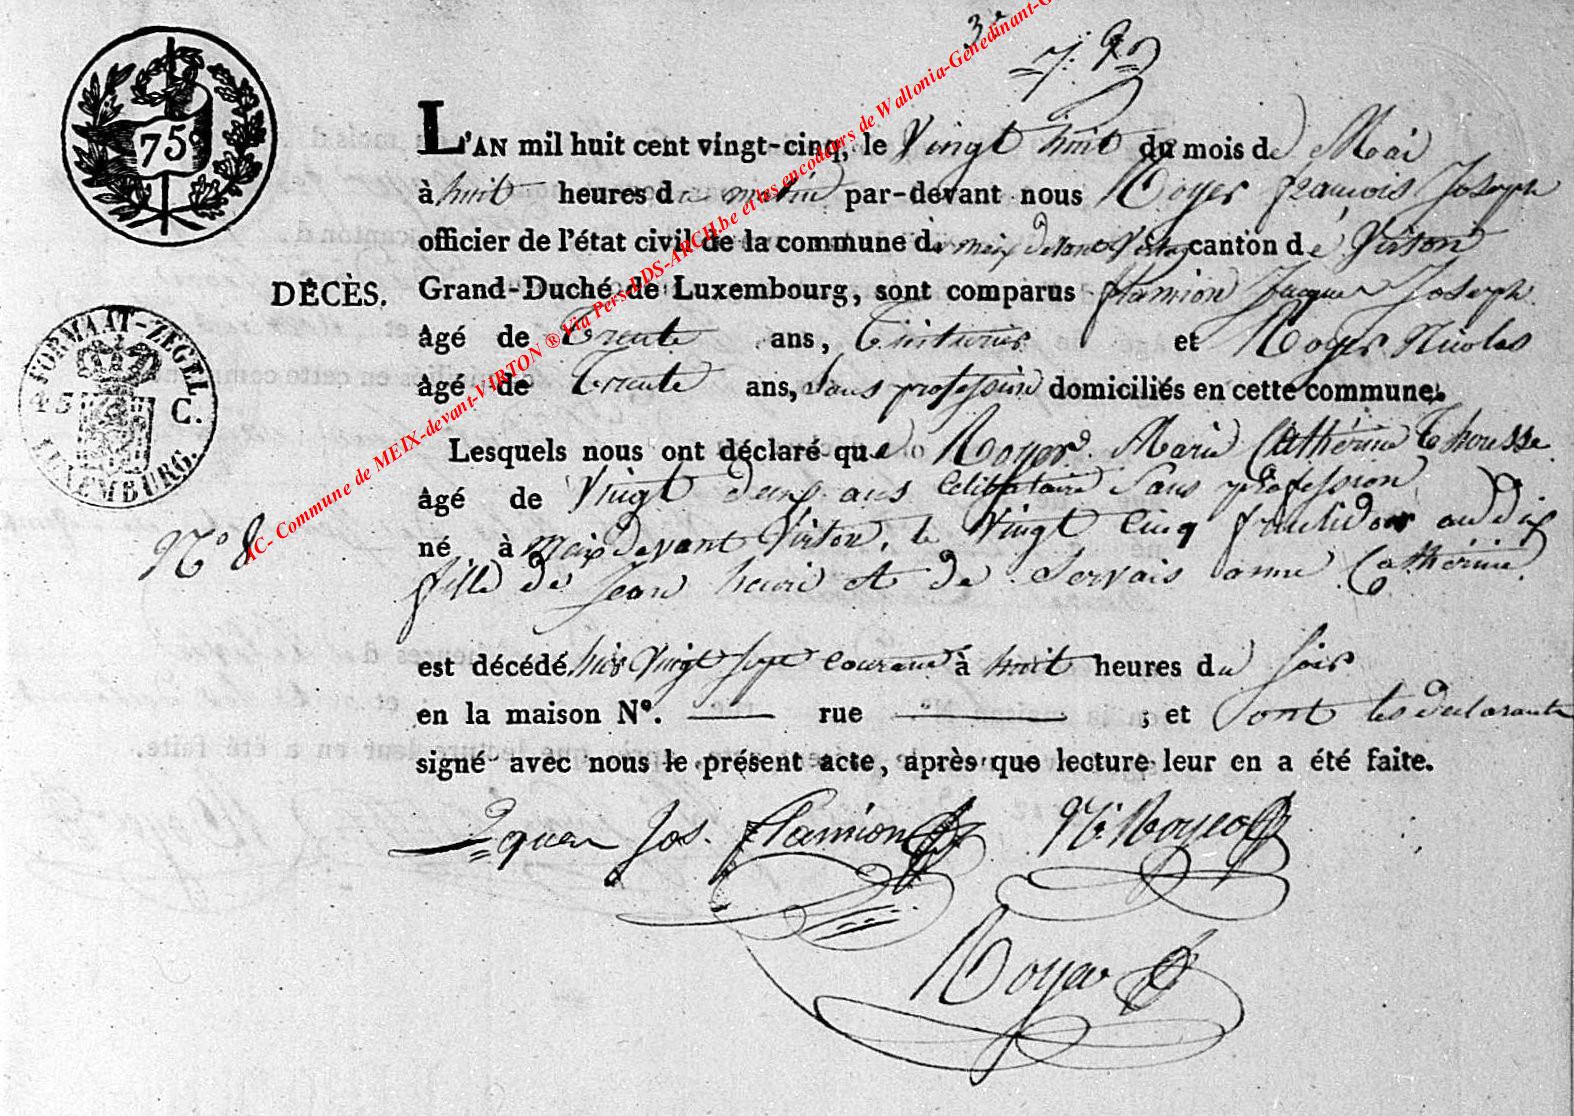 3e
75c
L'AN mil huit cent vingt-cinq, le Vingt huit du mois de Mai
à huit heures du matin par-devant nous Royer francois Joseph
officier de l'état civil de la commune de meix devant Virton canton de Virton
DÉCÈS. Grand-Duché de Luxembourg, sont comparus flamion Jacques Joseph
âgé de Trente ans, Teinturier et Royer Nicolas
âgé de Trente ans, Sans profession domiciliés en cette commune.
FORMAAT-ZEGEL
45 C.
LUXEMBURG.
Lesquels nous ont déclaré que Royer Marie Catherine Theresse
âgé de Vingt deux ans Celibataire Sans profession
né à meix devant Virton, le Vingt Cinq fructidor an dix
N° 8
fille de Jean henri et de Servais anne Catherine
est décédé hier Vingt Sept courant à huit heures du Soir
en la maison N°. rue ; et Sont les declarants
signé avec nous le présent acte, après que lecture leur en a été faite.
Jos. flamion Ns Royer
Royer
AC- Commune de MEIX-devant-VIRTON ® Via Pers-LDS-ARCH.be et les encodeurs de Wallonia-Genedinant-G